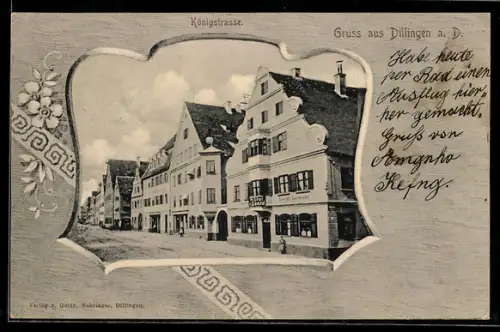 Königstrasse.
Gruss aus Dillingen a. D.
Habe heute
per Rad einen
Ausflug hier-
her gemacht.
Gruß von
Verlag v. Gottl. Nehringer, Dillingen.